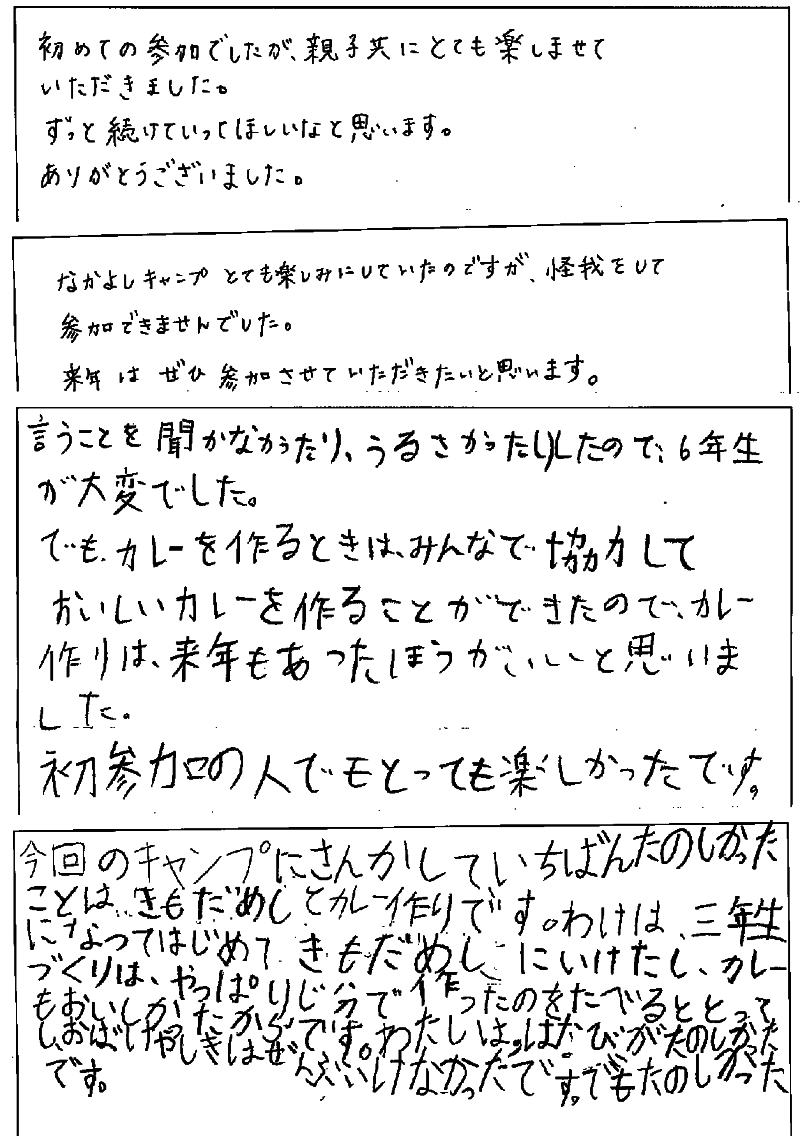 初めての参加でしたが、親子共にとても楽しませて
いただきました。
ずっと続けていってほしいなと思います。
ありがとうございました。
なかよしキャンプ とても楽しみにしていたのですが、怪我をして
参加できませんでした。
来年は ぜひ 参加させていただきたいと思います。
言うことを聞かなかったり、うるさかったりしたので、6年生
が大変でした。
でも、カレーを作るときは、みんなで協力して
おいしいカレーを作ることができたので、カレー
作りは、来年もあったほうがいいと思いま
した。
初参加の人でモとっても楽しかったです。
今回のキャンプにさんかしていちばんたのしかった
ことは、きもだめしとカレー作りです。わけは、三年生
になってはじめて きもだめし にいけたし、カレー
づくりは、やっぱりじ分で作ったのをたべるととって
もおいしかたからです。わたしは、はなびがたのしかった
し、おばけやしきはぜんぶいけなかったです。でもたのしかった
です。